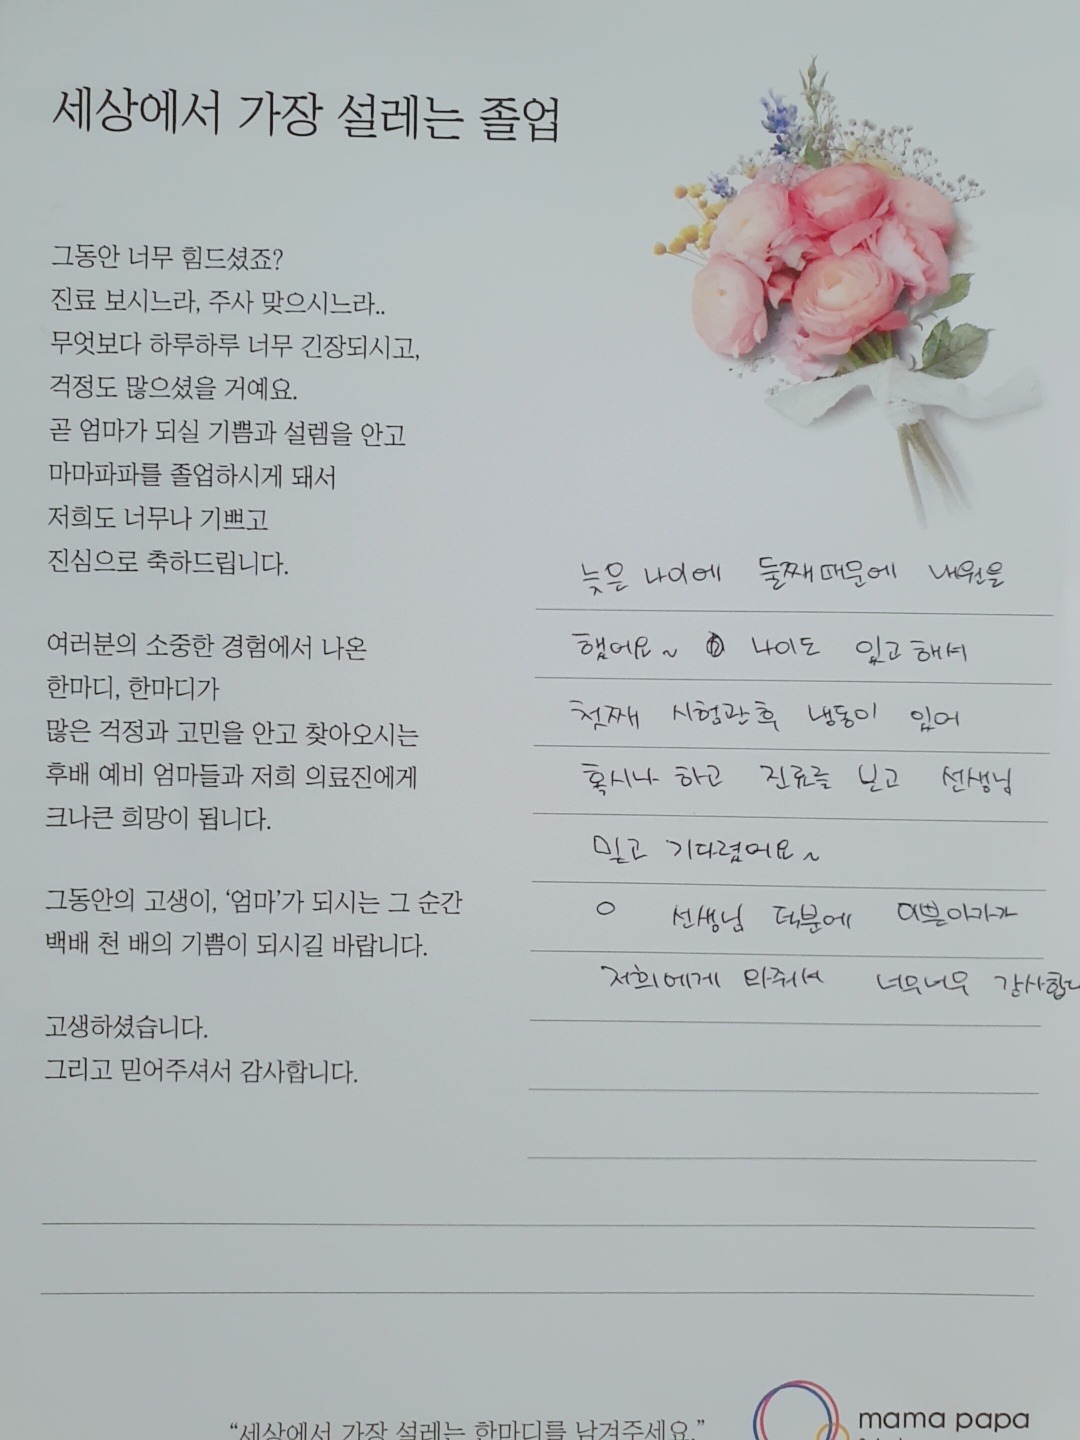 세상에서 가장 설레는 졸업
그동안 너무 힘드셨죠?
진료 보시느라, 주사 맞으시느라..
무엇보다 하루하루 너무 긴장되시고,
걱정도 많으셨을 거예요.
곧 엄마가 되실 기쁨과 설렘을 안고
마마파파를 졸업하시게 돼서
저희도 너무나 기쁘고
진심으로 축하드립니다.
여러분의 소중한 경험에서 나온
한마디, 한마디가
많은 걱정과 고민을 안고 찾아오시는
후배 예비 엄마들과 저희 의료진에게
크나큰 희망이 됩니다.
그동안의 고생이, ‘엄마’가 되시는 그 순간
백배 천 배의 기쁨이 되시길 바랍니다.
고생하셨습니다.
그리고 믿어주셔서 감사합니다.
늦은 나이에 둘째때문에 내원을
했어요~ 나이도 있고해서
첫째 시험관후 냉동이 있어
혹시나 하고 진료를 보고 선생님
믿고 기다렸어요~
선생님 덕분에 이쁜아가가
저희에게 와줘서 너무너무 감사합니
“세상에서 가장 설레는 한마디를 남겨주세요.”
mama papa